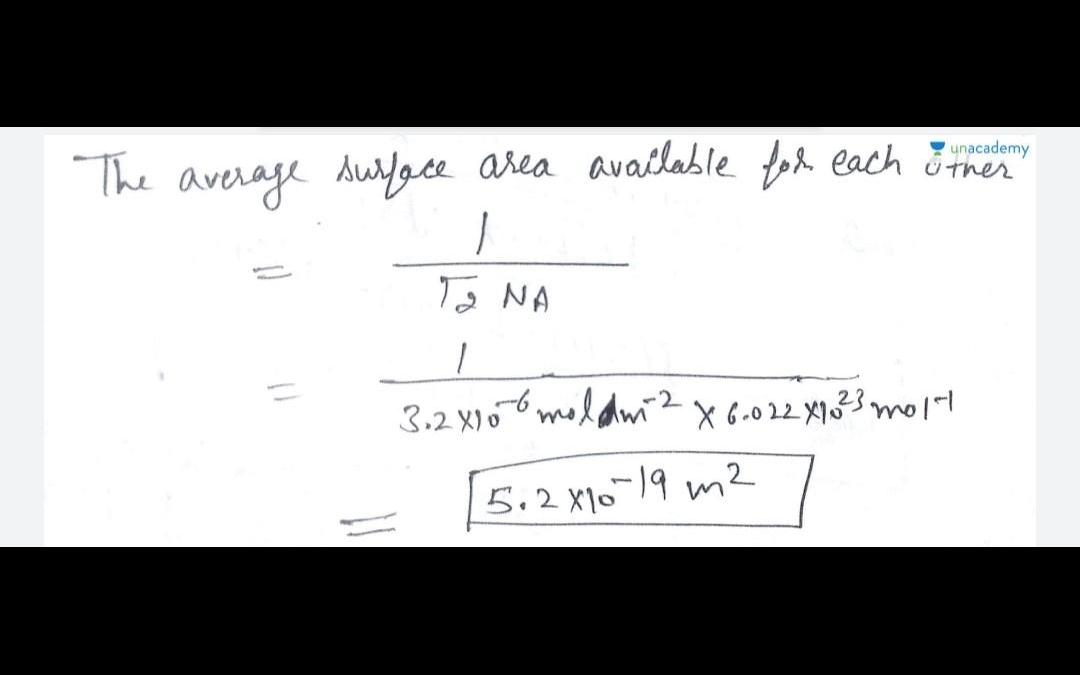 unacademy
The average surface area available for each other
= 1 / Γ2 NA
= 1 / 3.2 X10-6 mol dm-2 X 6.022 X1023 mol-1
= 5.2 X10-19 m2